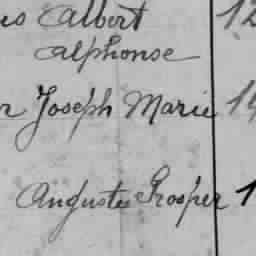 Albert 12
Alphonse
Joseph Marie 14
Auguste Prosper 1